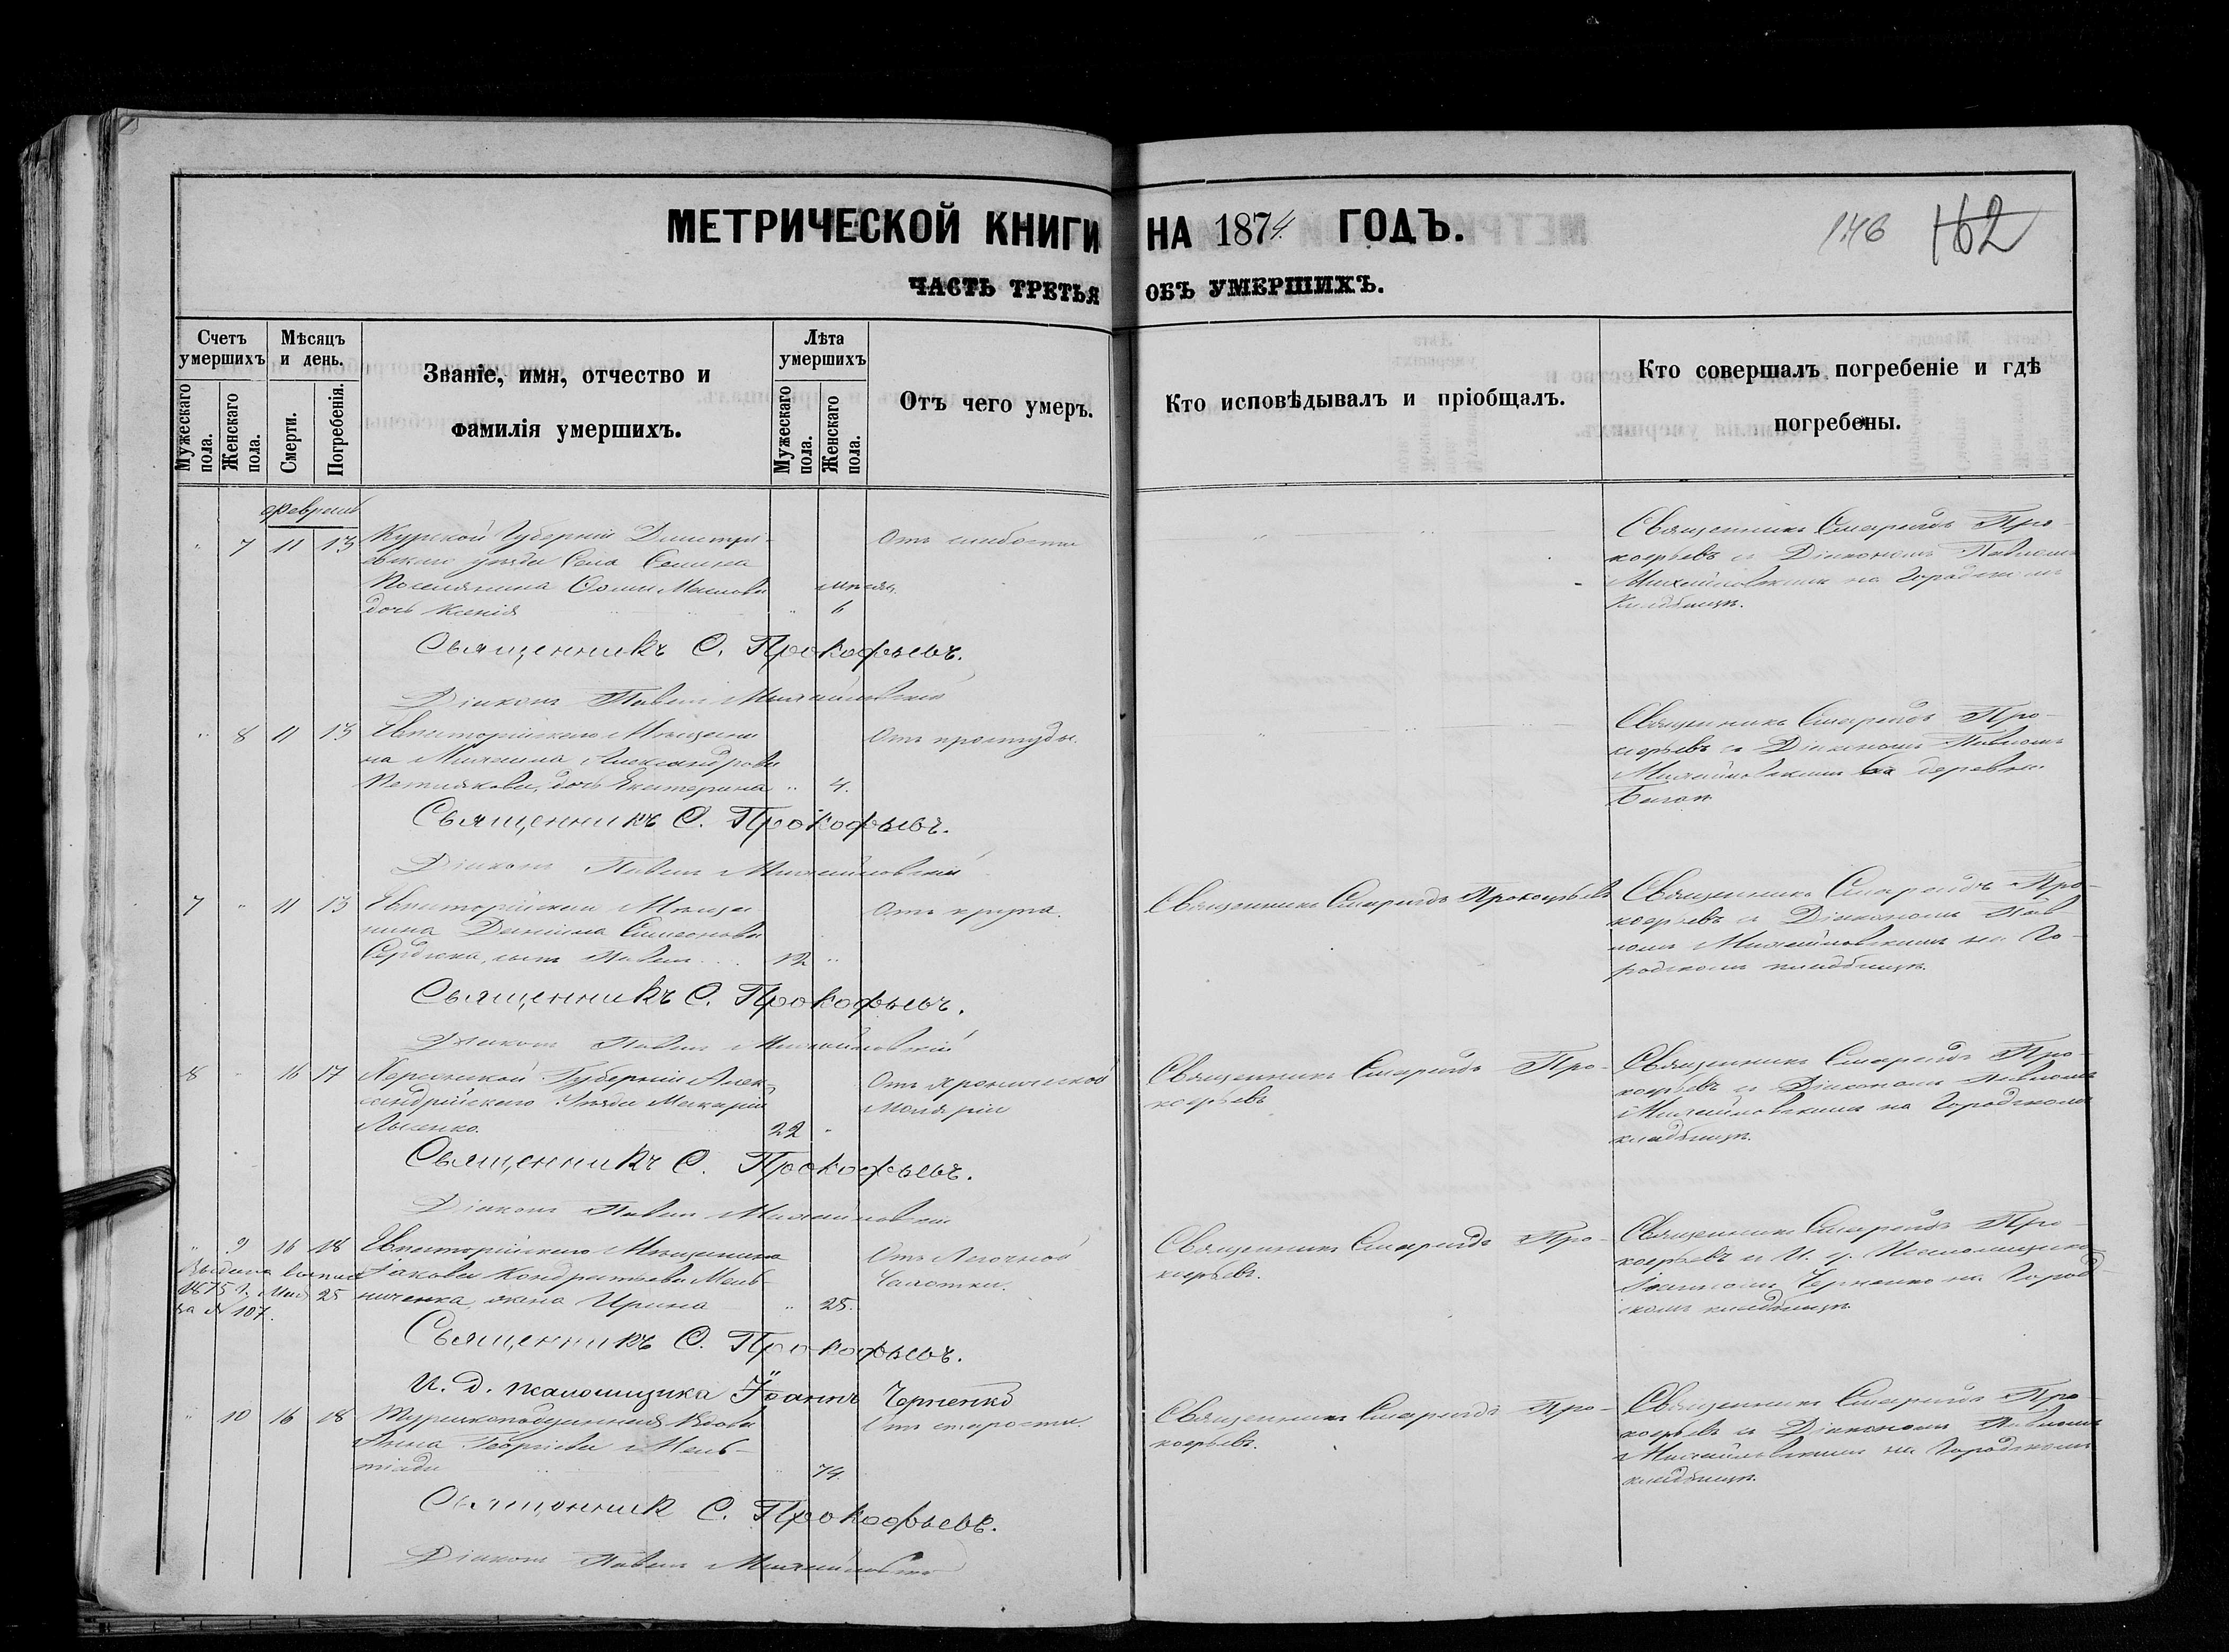 МЕТРИЧЕСКОЙ КНИГИ НА 1874 ГОДЪ.
146 162
ЧАСТЬ ТРЕТЬЯ ОБЪ УМЕРШИХЪ.
Счетъ умершихъ
Мужескаго пола.
Женскаго пола.
Мѣсяцъ и день.
Смерти.
Погребенія.
Званіе, имя, отчество и
фамилія умершихъ.
Лѣта умершихъ
Мужескаго пола.
Женскаго пола.
Отъ чего умеръ.
Кто исповѣдывалъ и пріобщалъ.
Кто совершалъ погребеніе и гдѣ
погребены.
Февраль
" 7 11 13 Курской Губерніи Димитрі-
евскаго уѣзда Села
Поселянина
дочь Ксенія " 6
Отъ слабости
Священникъ Спиридонъ Про-
кофьевъ съ Діакономъ Павломъ
Михайловскимъ на Городскомъ
Кладбищѣ.
Священникъ С. Прокофьевъ.
Діаконъ Павелъ Михайловскій
" 8 11 13 Евпаторійскаго Мѣщани
на Михаила Александрова
дочь Екатерина " 4.
Отъ простуды.
Священникъ Спиридонъ Про-
кофьевъ съ Діакономъ Павломъ
Михайловскимъ въ деревни
Священникъ С. Прокофьевъ.
Діаконъ Павелъ Михайловскій
7 " 11 13 Евпаторійскаго Мѣща
нина Даніила Симеонова
Сердюка, сынъ Павелъ 12 "
Отъ крупа.
Священникъ Спиридонъ Прокофьевъ
Священникъ Спиридонъ Про-
кофьевъ съ Діакономъ Пав-
ломъ Михайловскимъ на Го-
родскомъ кладбищѣ.
Священникъ С. Прокофьевъ.
Діаконъ Павелъ Михайловскій
8 " 16 17 Херсонской Губерніи Алек-
сандрійскаго Уѣзда Макарій
Лысенко. 22 "
Отъ Хронической
Маляріи
Священникъ Спиридонъ Про-
кофьевъ
Священникъ Спиридонъ Про-
кофьевъ съ Діакономъ Павломъ
Михайловскимъ на Городскомъ
кладбищѣ.
Священникъ С. Прокофьевъ.
Діаконъ Павелъ Михайловскій
" 9 16 18 Евпаторійскаго Мѣщанина
Іакова Кондратьева Мель-
ниченка, жена Ирина " 25.
Выдана выпись
1875 г. Мая 25
за № 107.
Отъ Легочной
Чахотки.
Священникъ Спиридонъ Про-
кофьевъ.
Священникъ Спиридонъ Про-
кофьевъ и И. д. Псаломщика
Іоанномъ Черненко на Город
скомъ кладбищѣ.
Священникъ С. Прокофьевъ.
И. д. псаломщика Іоаннъ Черненко
" 10 16 18 Турецкоподданная Вдова
Анна Георгіева Мель-
тіади " 74.
Отъ старости
Священникъ Спиридонъ Про-
кофьевъ.
Священникъ Спиридонъ Про-
кофьевъ съ Діакономъ Павломъ
Михайловскимъ на Городскомъ
кладбищѣ.
Священник С. Прокофьевъ.
Діаконъ Павелъ Михайловскій